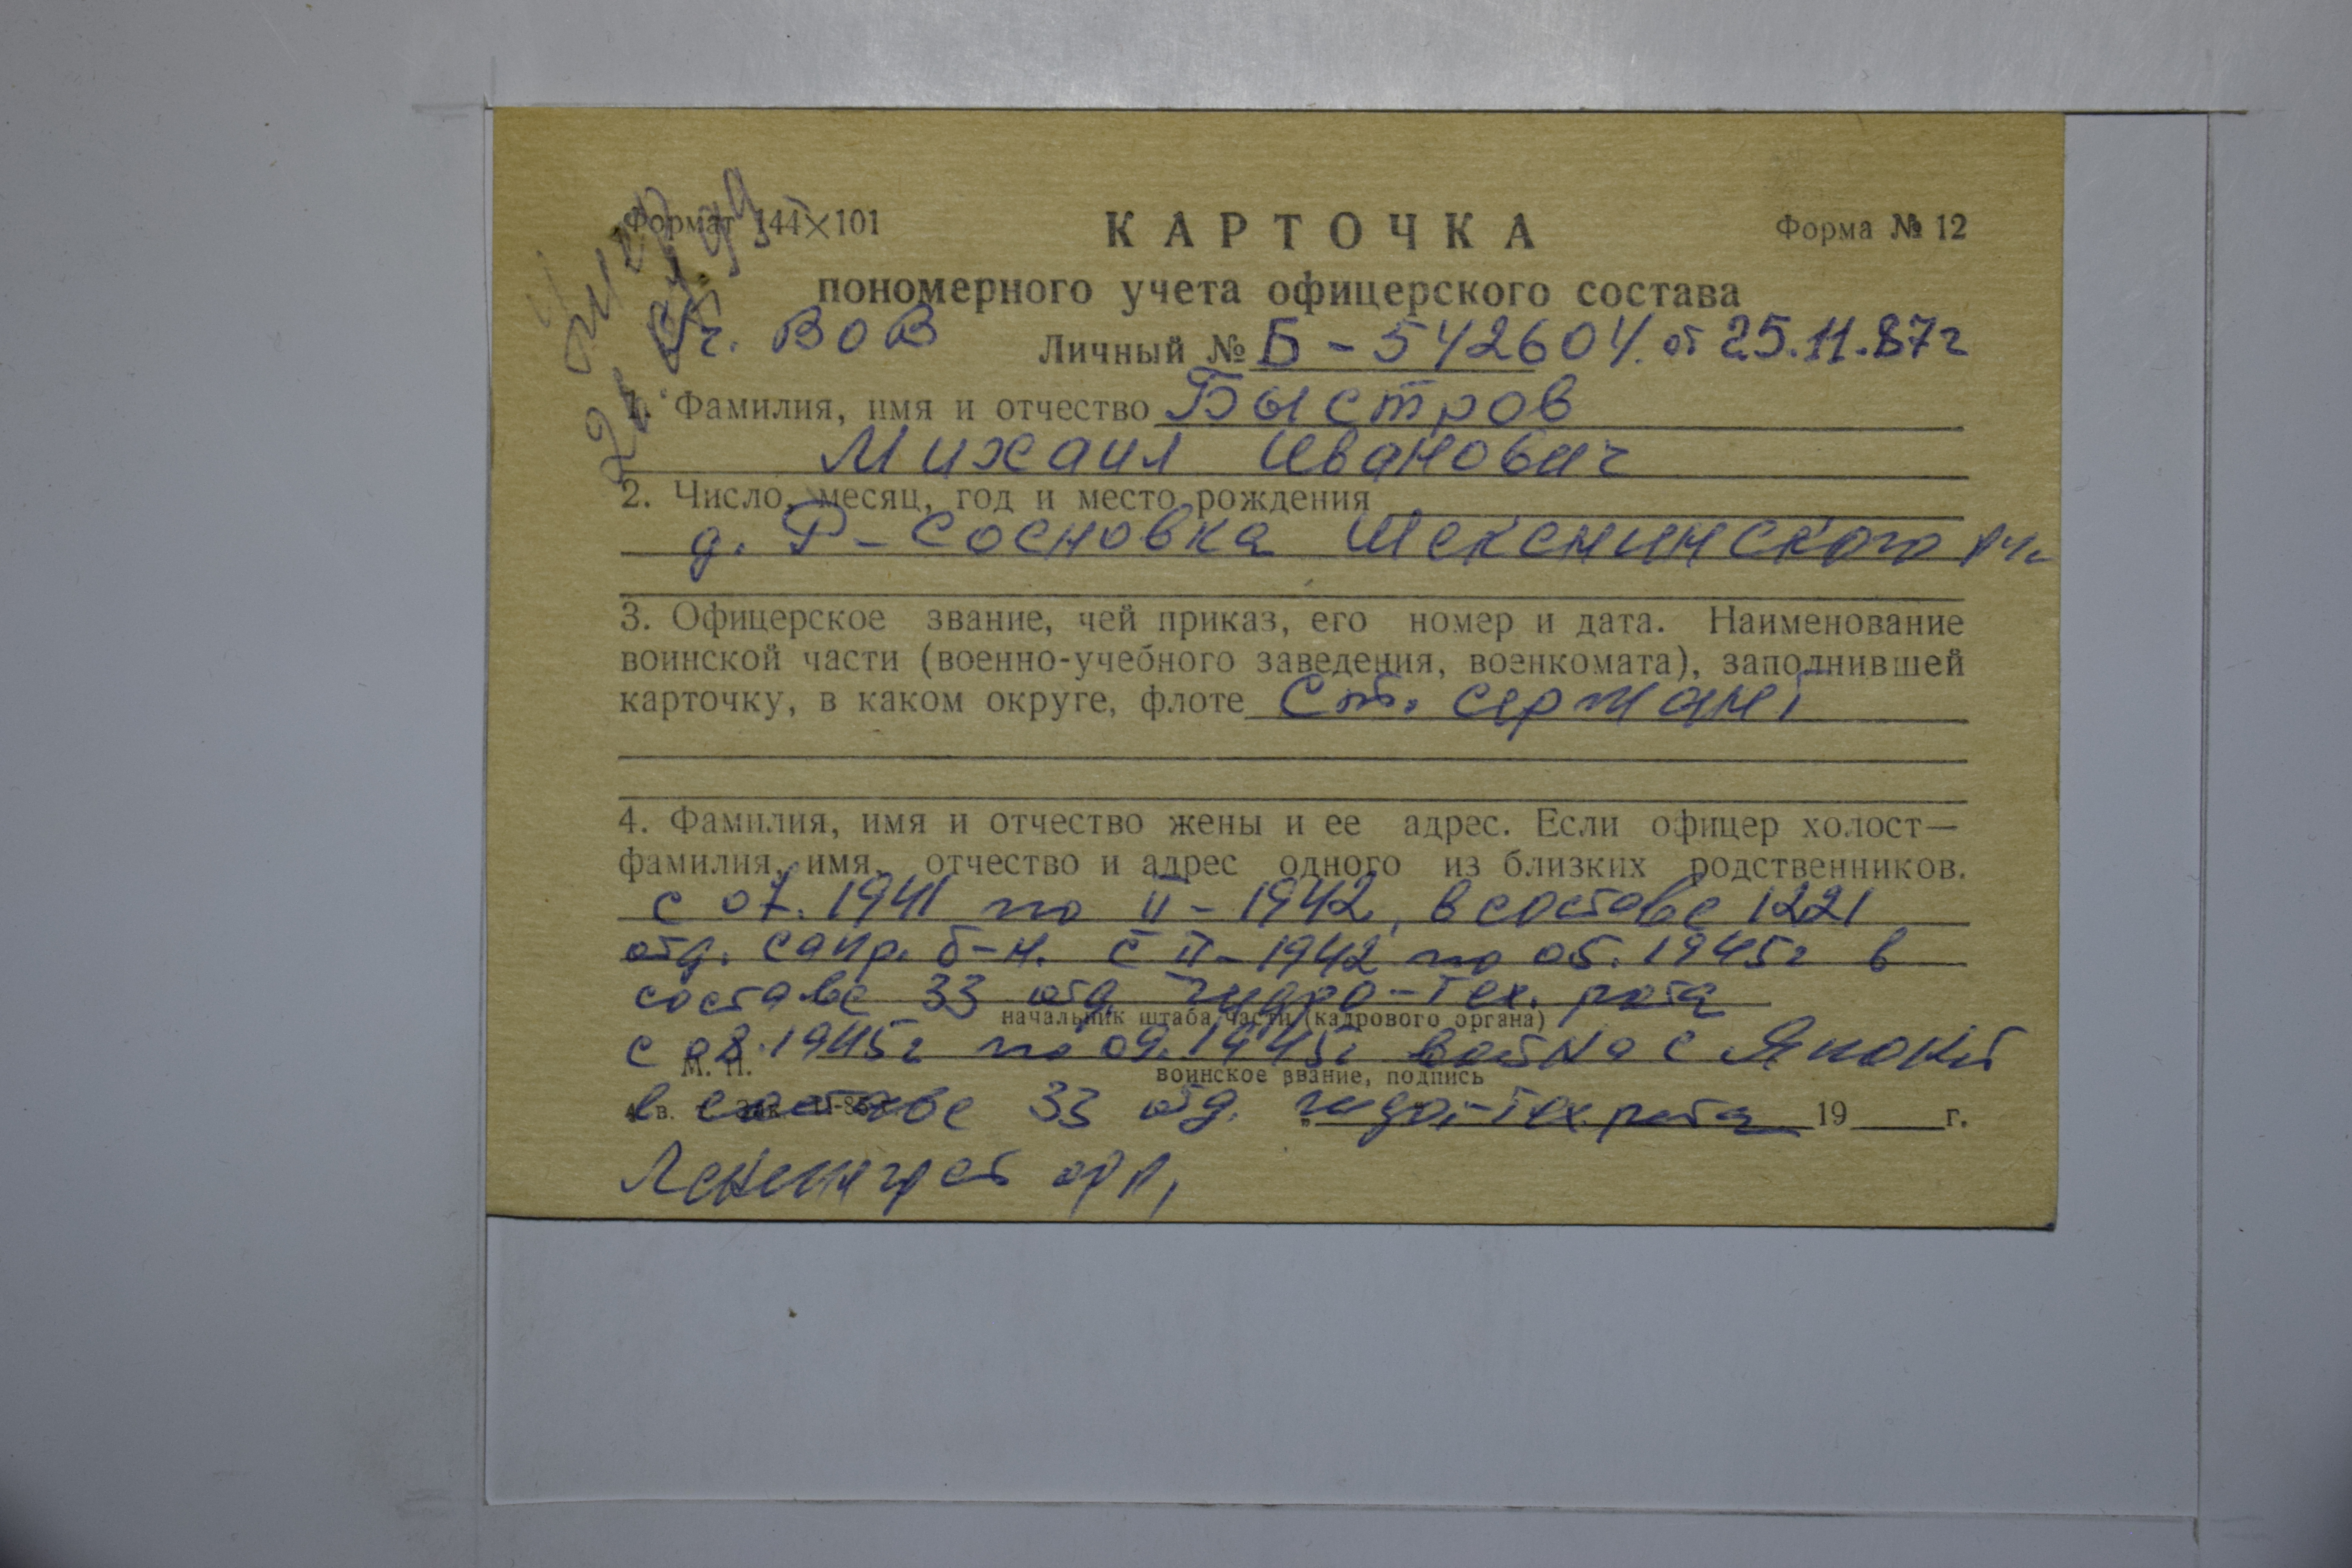 Формат 144×101
КАРТОЧКА
Форма № 12
пономерного учета офицерского состава
Уч. ВОВ
Личный № Б-542604. от 25.11.87г
умер
1. Фамилия, имя и отчество Быстров
Михаил Иванович
2. Число, месяц, год и место рождения
д. Р-Сосновка Шекснинского
3. Офицерское звание, чей приказ, его номер и дата. Наименование
воинской части (военно-учебного заведения, военкомата), заполнившей
карточку, в каком округе, флоте Ст. сержант
4. Фамилия, имя и отчество жены и ее адрес. Если офицер холост—
фамилия, имя, отчество и адрес одного из близких родственников.
с 07.1941 по II-1942, в составе 1221
отд. сапр. б-н. с II-1942 по 05.1945г в
составе 33 отд гидро-тех. рота
начальник штаба части (кадрового органа)
с 08.1945г по 09.1945г война с Япони
М. П.
воинское звание, подпись
в составе 33 отд. гидро-тех рота 19 г.